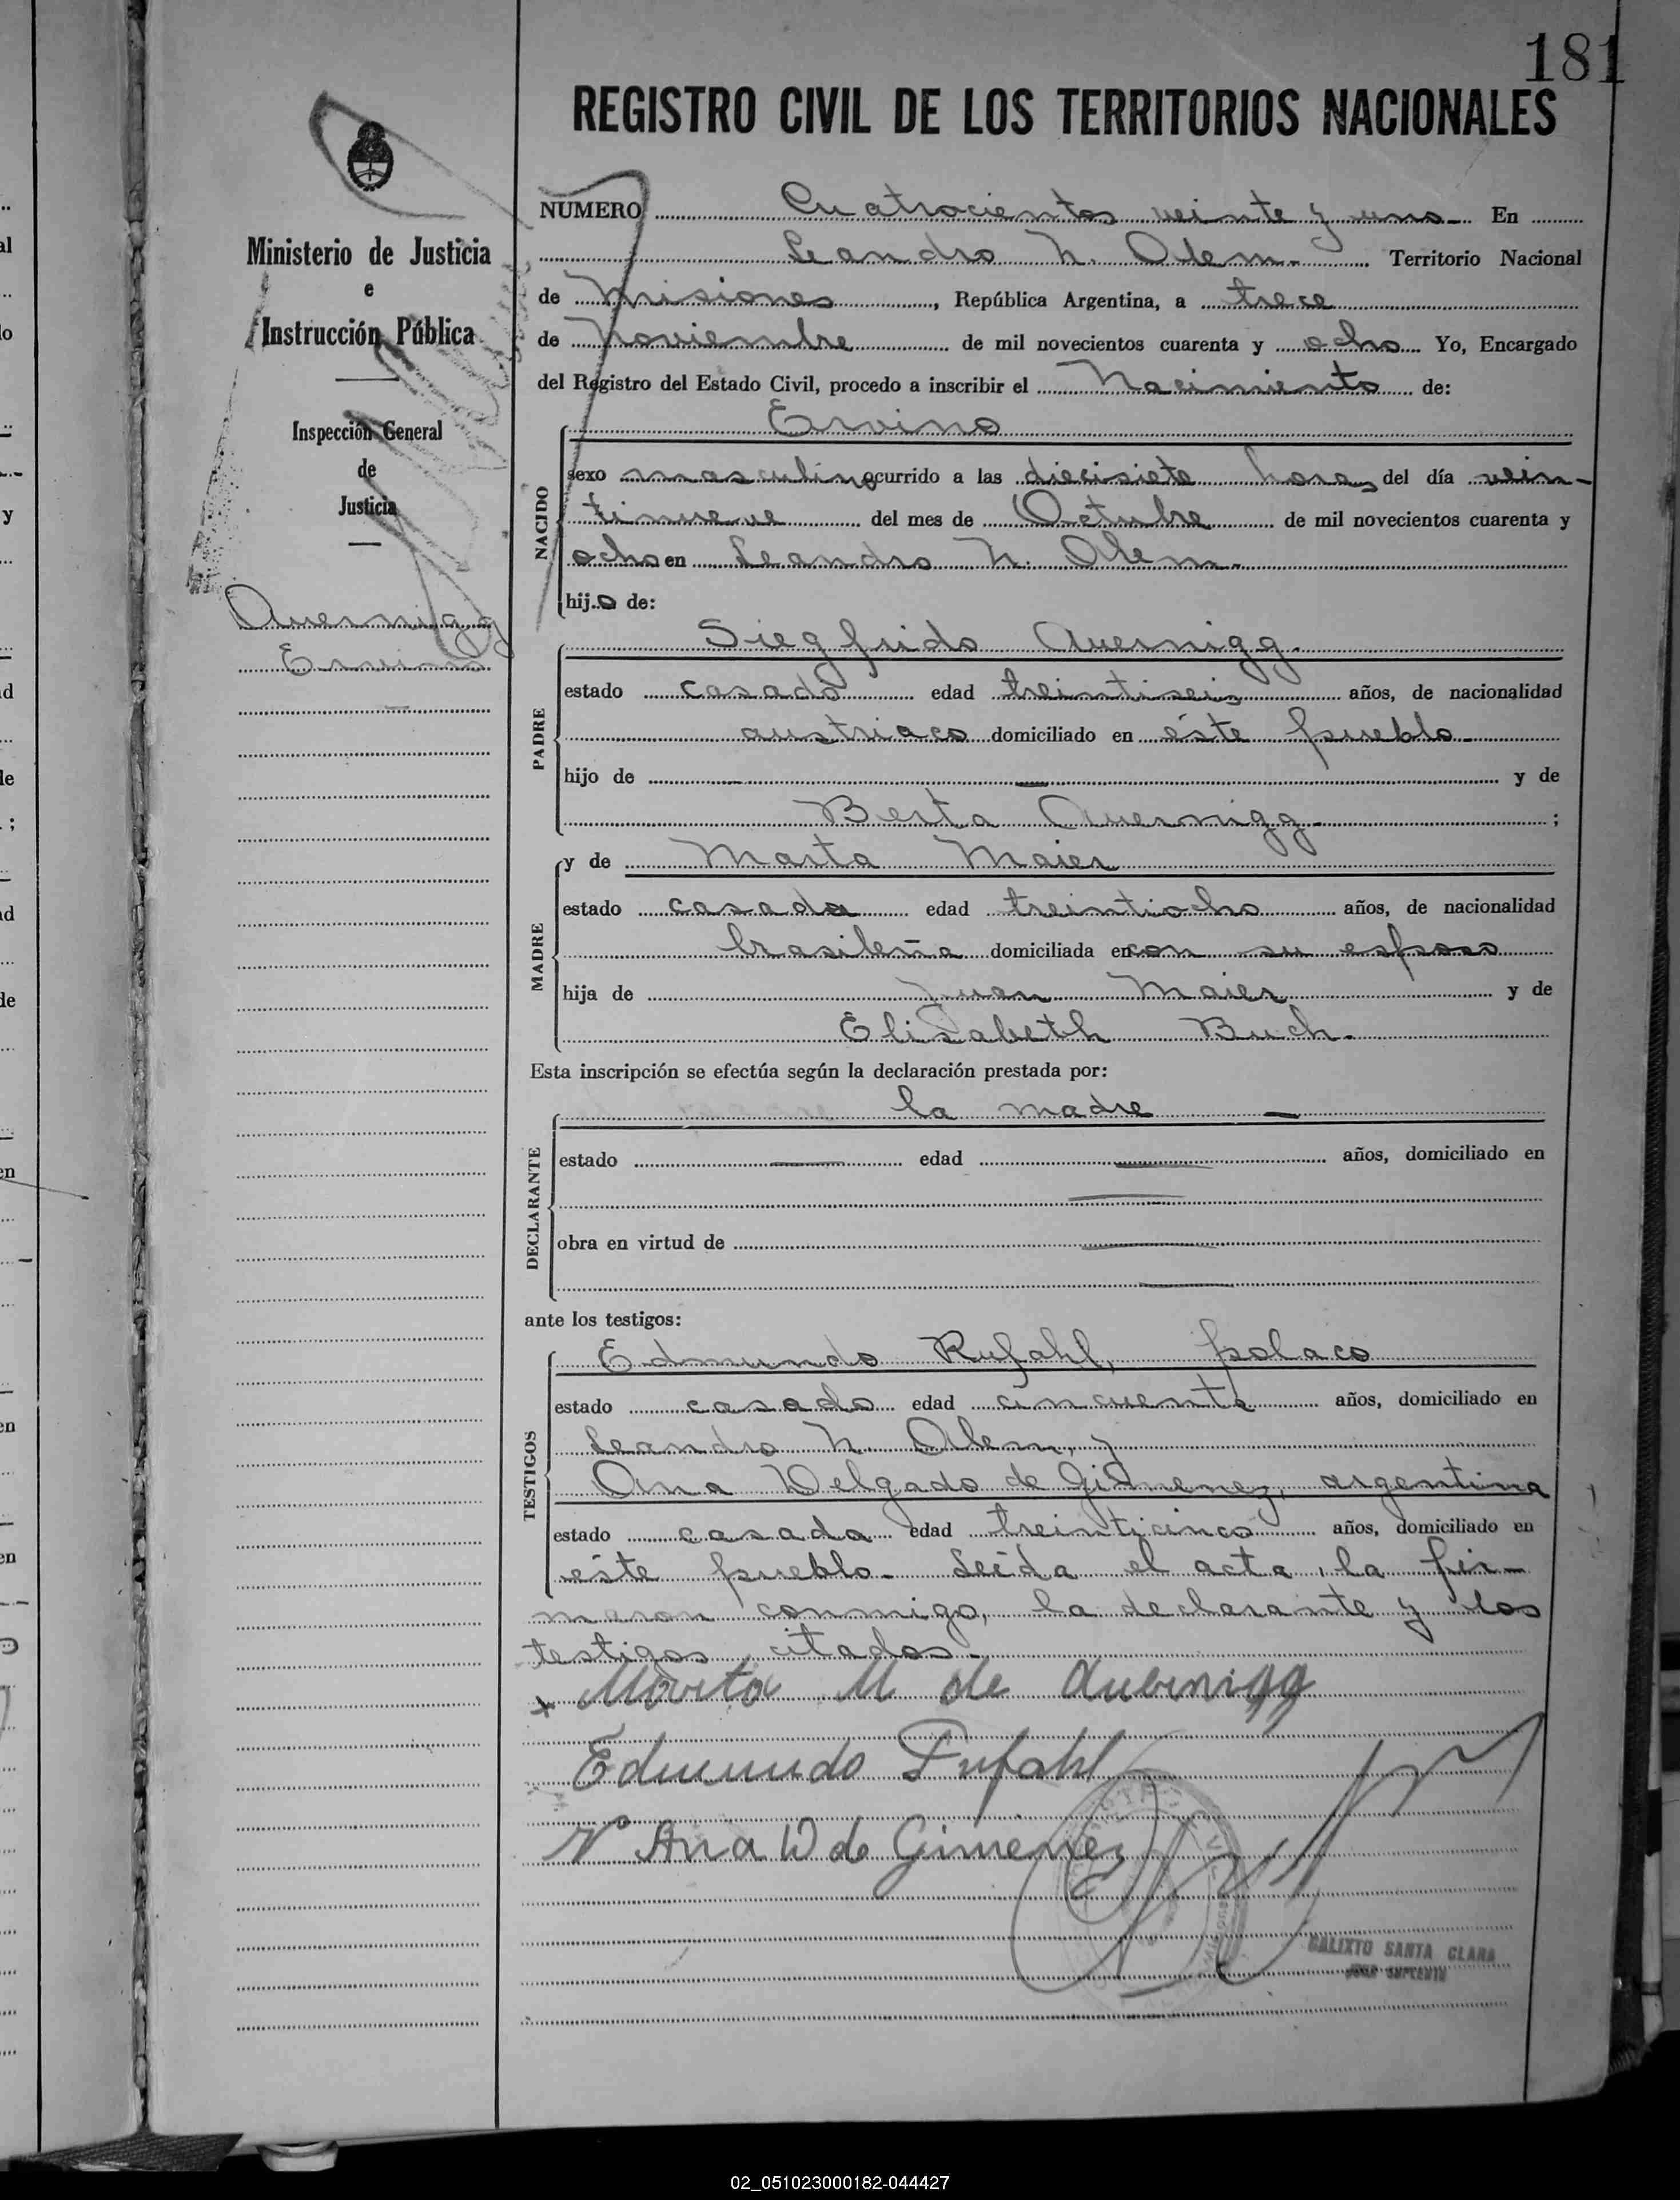 181
REGISTRO CIVIL DE LOS TERRITORIOS NACIONALES
Ministerio de Justicia
e
Instrucción Pública
Inspección General
de
Justicia
Auernigg
Ervino
NUMERO Cuatrocientos veinte y uno En
Leandro N. Alem. Territorio Nacional
de Misiones, República Argentina, a trece
de Noviembre de mil novecientos cuarenta y ocho Yo, Encargado
del Registro del Estado Civil, procedo a inscribir el Nacimiento de:
Ervino
NACIDO
sexo masculino ocurrido a las diecisiete horas del día vein-
tinueve del mes de Octubre de mil novecientos cuarenta y
ocho en Leandro N. Alem.
hijo de:
Siegfrido Auernigg.
PADRE
estado casado edad treintiseis años, de nacionalidad
austriaco domiciliado en éste pueblo
hijo de — — y de
Berta Auernigg. ;
y de Marta Maier
MADRE
estado casada edad treintiocho años, de nacionalidad
brasileña domiciliada en con su esposo
hija de Juan Maier y de
Elisabeth Buch.
Esta inscripción se efectúa según la declaración prestada por:
la madre —
DECLARANTE
estado — edad — años, domiciliado en
—
obra en virtud de —
—
ante los testigos:
Edmundo Rufahl, polaco
TESTIGOS
estado casado edad cincuenta años, domiciliado en
Leandro N. Alem, y
Ana Delgado de Gimenez, argentina
estado casada edad treinticinco años, domiciliado en
éste pueblo. Leída el acta, la fir-
maron conmigo, la declarante y los
testigos citados.
x Marta M de Auernigg
Edmundo Pufahl
Ana D de Gimenez
CALIXTO SANTA CLARA
JUEZ SUPLENTE
02_051023000182-044427